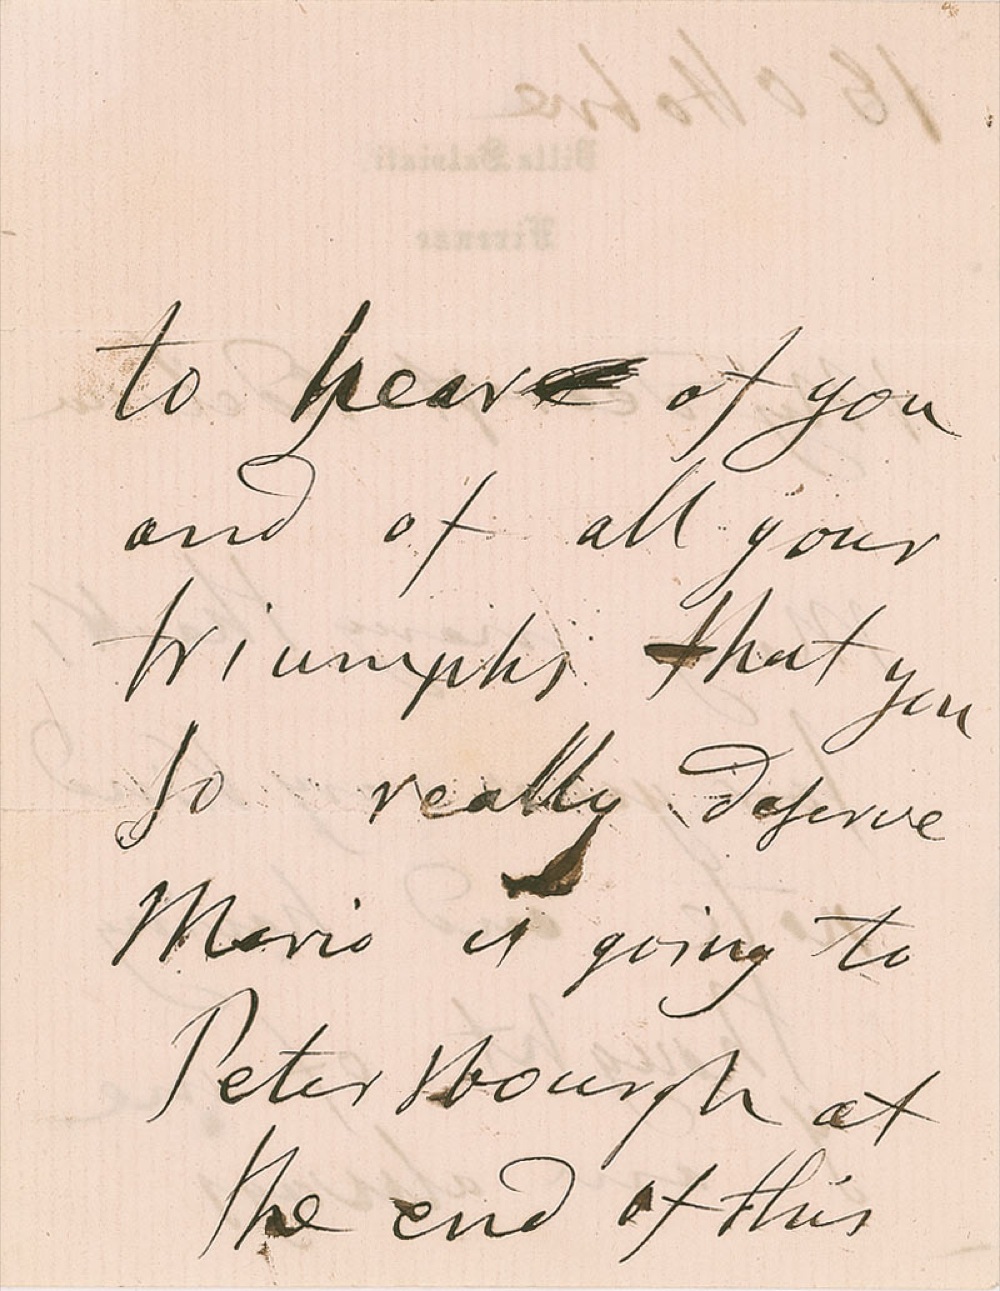 18 Ottobre
Villa Salviati
Firenze
to hear of you
and of all your
triumphs that you
so really deserve
Mario is going to
Petersbourgh at
the end of this